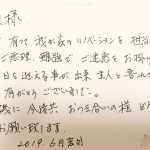 様
有って 我が家のリノベーションを担当
ご無理、難題で ご迷惑をお掛け
日を迎える事が出来 主人と喜んで
有がとうございました。
後に 今後共 お つき合いの程 ど
お願い致します。
2019 6月吉日